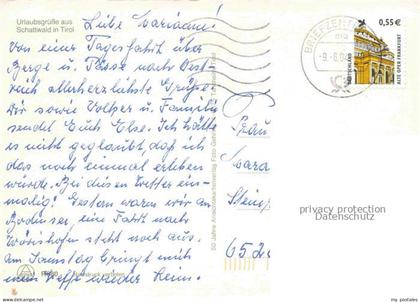 Urlaubsgrüße aus
Schattwald in Tirol
Liebe Marianne!
Von einer Tagesfahrt über
Berge u. Pässe nach Öster-
reich allerherzlichste Grüße.
Wir sowie Volker u. Familie
sendet Euch Else. Ich hätte
es nicht geglaubt, daß ich
das noch einmal erleben
würde. Bei diesem Wetter ein-
malig! Gestern waren wir am
Bodensee eine Fahrt nach
Wörishofen steht noch aus.
Am Samstag bringt mich
mein Neffe wieder heim.
50 Jahre Ansichtskartenverlag Foto
Nachdruck verboten
BRIEFZENTRUM
-9.-6.0
0,55 €
DEUTSCHLAND
ALTE OPER FRANKFURT
Frau
652
privacy protection
Datenschutz